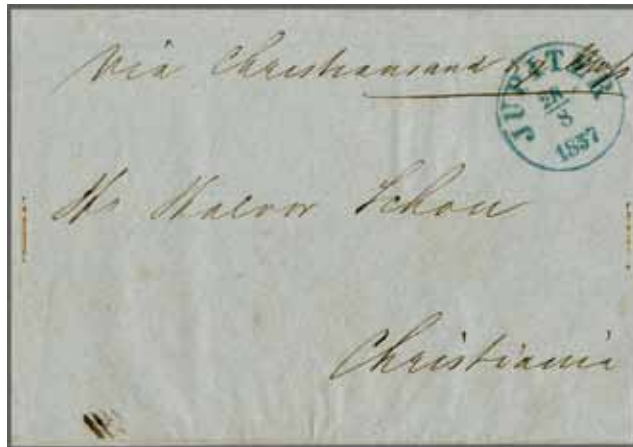 Via Christiansand og Moss
JUPITER
5/8
1857
Hr Halvor Schou
Christiania